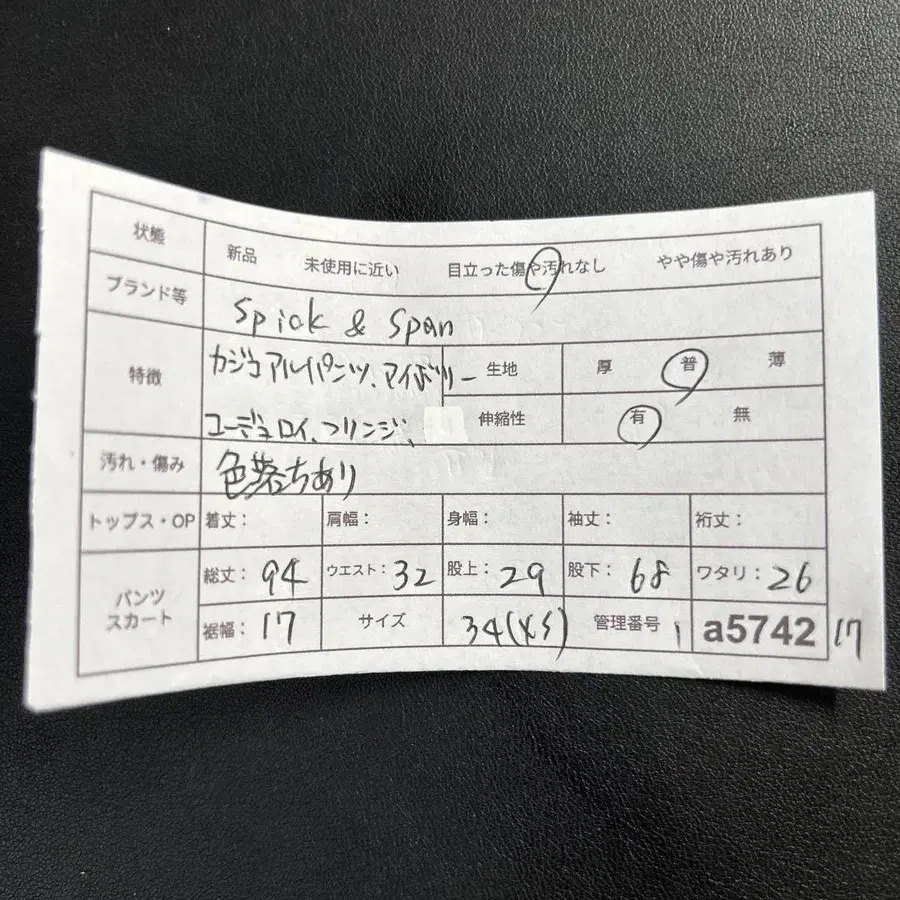 状態 新品 未使用に近い 目立った傷や汚れなし やや傷や汚れあり
ブランド等 Spick & Span
特徴 カジュアルパンツ、アイボリー 生地 厚 普 薄
コーデュロイ、フリンジ、 伸縮性 有 無
汚れ・傷み 色落ちあり
トップス・OP 着丈: 肩幅: 身幅: 袖丈: 裄丈:
パンツ スカート 総丈: 94 ウエスト: 32 股上: 29 股下: 68 ワタリ: 26
裾幅: 17 サイズ 34(XS) 管理番号 1 a5742 17